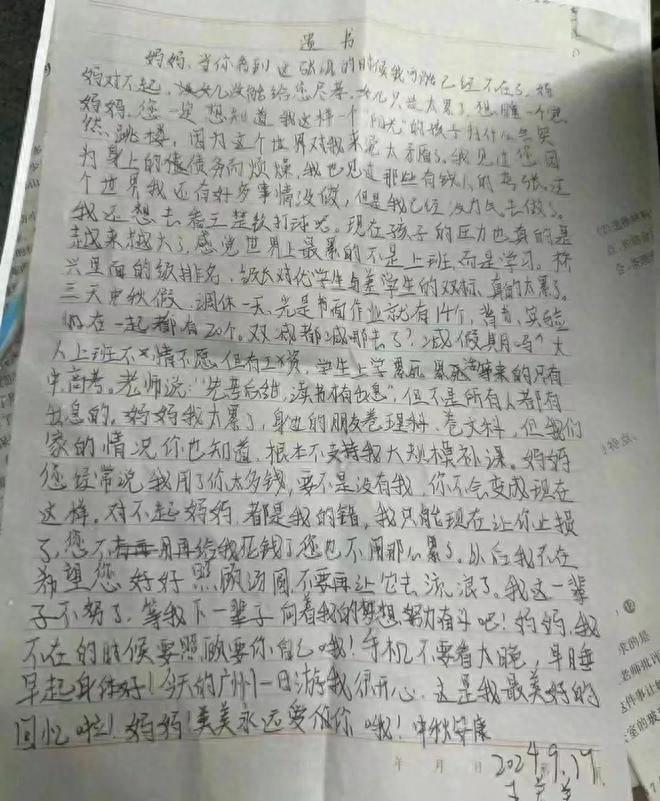 遗书
妈妈,当你看到这封信的时候我可能已经不在了,妈
妈对不起,女儿没能给您尽孝,女儿只是太累了,想睡一个觉
妈妈,您一定想知道我这样一个"阳光"的孩子为什么会突
然跳楼,因为这个世界对我来说太矛盾了,我见过您因
为身上的债务而烦燥,我也见过那些有钱人的夸张,这
个世界我还有好多事情没做,但是我已经没力气去做了。
我还想去看三楚软打球呢。现在孩子的压力也真的是
越来越大了,感觉世界上最累的不是上班,而是学习。
兴里面的级排名,级长对优学生与差学生的双标,真的太累了。
三天中秋假,调休一天,光是书面作业就有14个,背书,实验
在一起都有20个。双减都减哪去了?减假期吗?大
人上班不情不愿,但有工资,学生上学累死累死等来的只有
中高考。老师说:"先苦后甜,读书才有出息",但不是所有人都有
出息的。妈妈我太累了,身边的朋友卷理科,卷文科,但我们
家的情况你也知道,根本不支持我大规模补课。妈妈
您经常说我用了你太多钱,要不是没有我,你不会变成现在
这样。对不起妈妈,都是我的错,我只能现在让你止损
了,您不用再给我花钱了您也不用那么累了。以后我不在
希望您好好照顾汤圆,不要再让它去流浪了。我这一辈
子不努了,等我下一辈子向着我的梦想努力奋斗吧!妈妈,我
不在的时候要照顾要你自己哦!手机不要看太晚,早睡
早起身体好!今天的广州一日游我很开心,这是我最美好的
回忆啦!妈妈!美美永远爱你你哦!中秋安康
年 月 日
2024.9.17